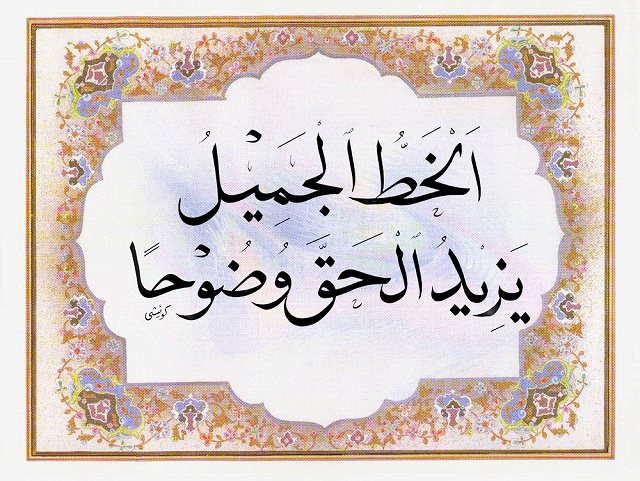 اَلْخَطُّ الْجَمِيْلُ
يَزِيْدُ الْحَقَّ وُضُوْحًا